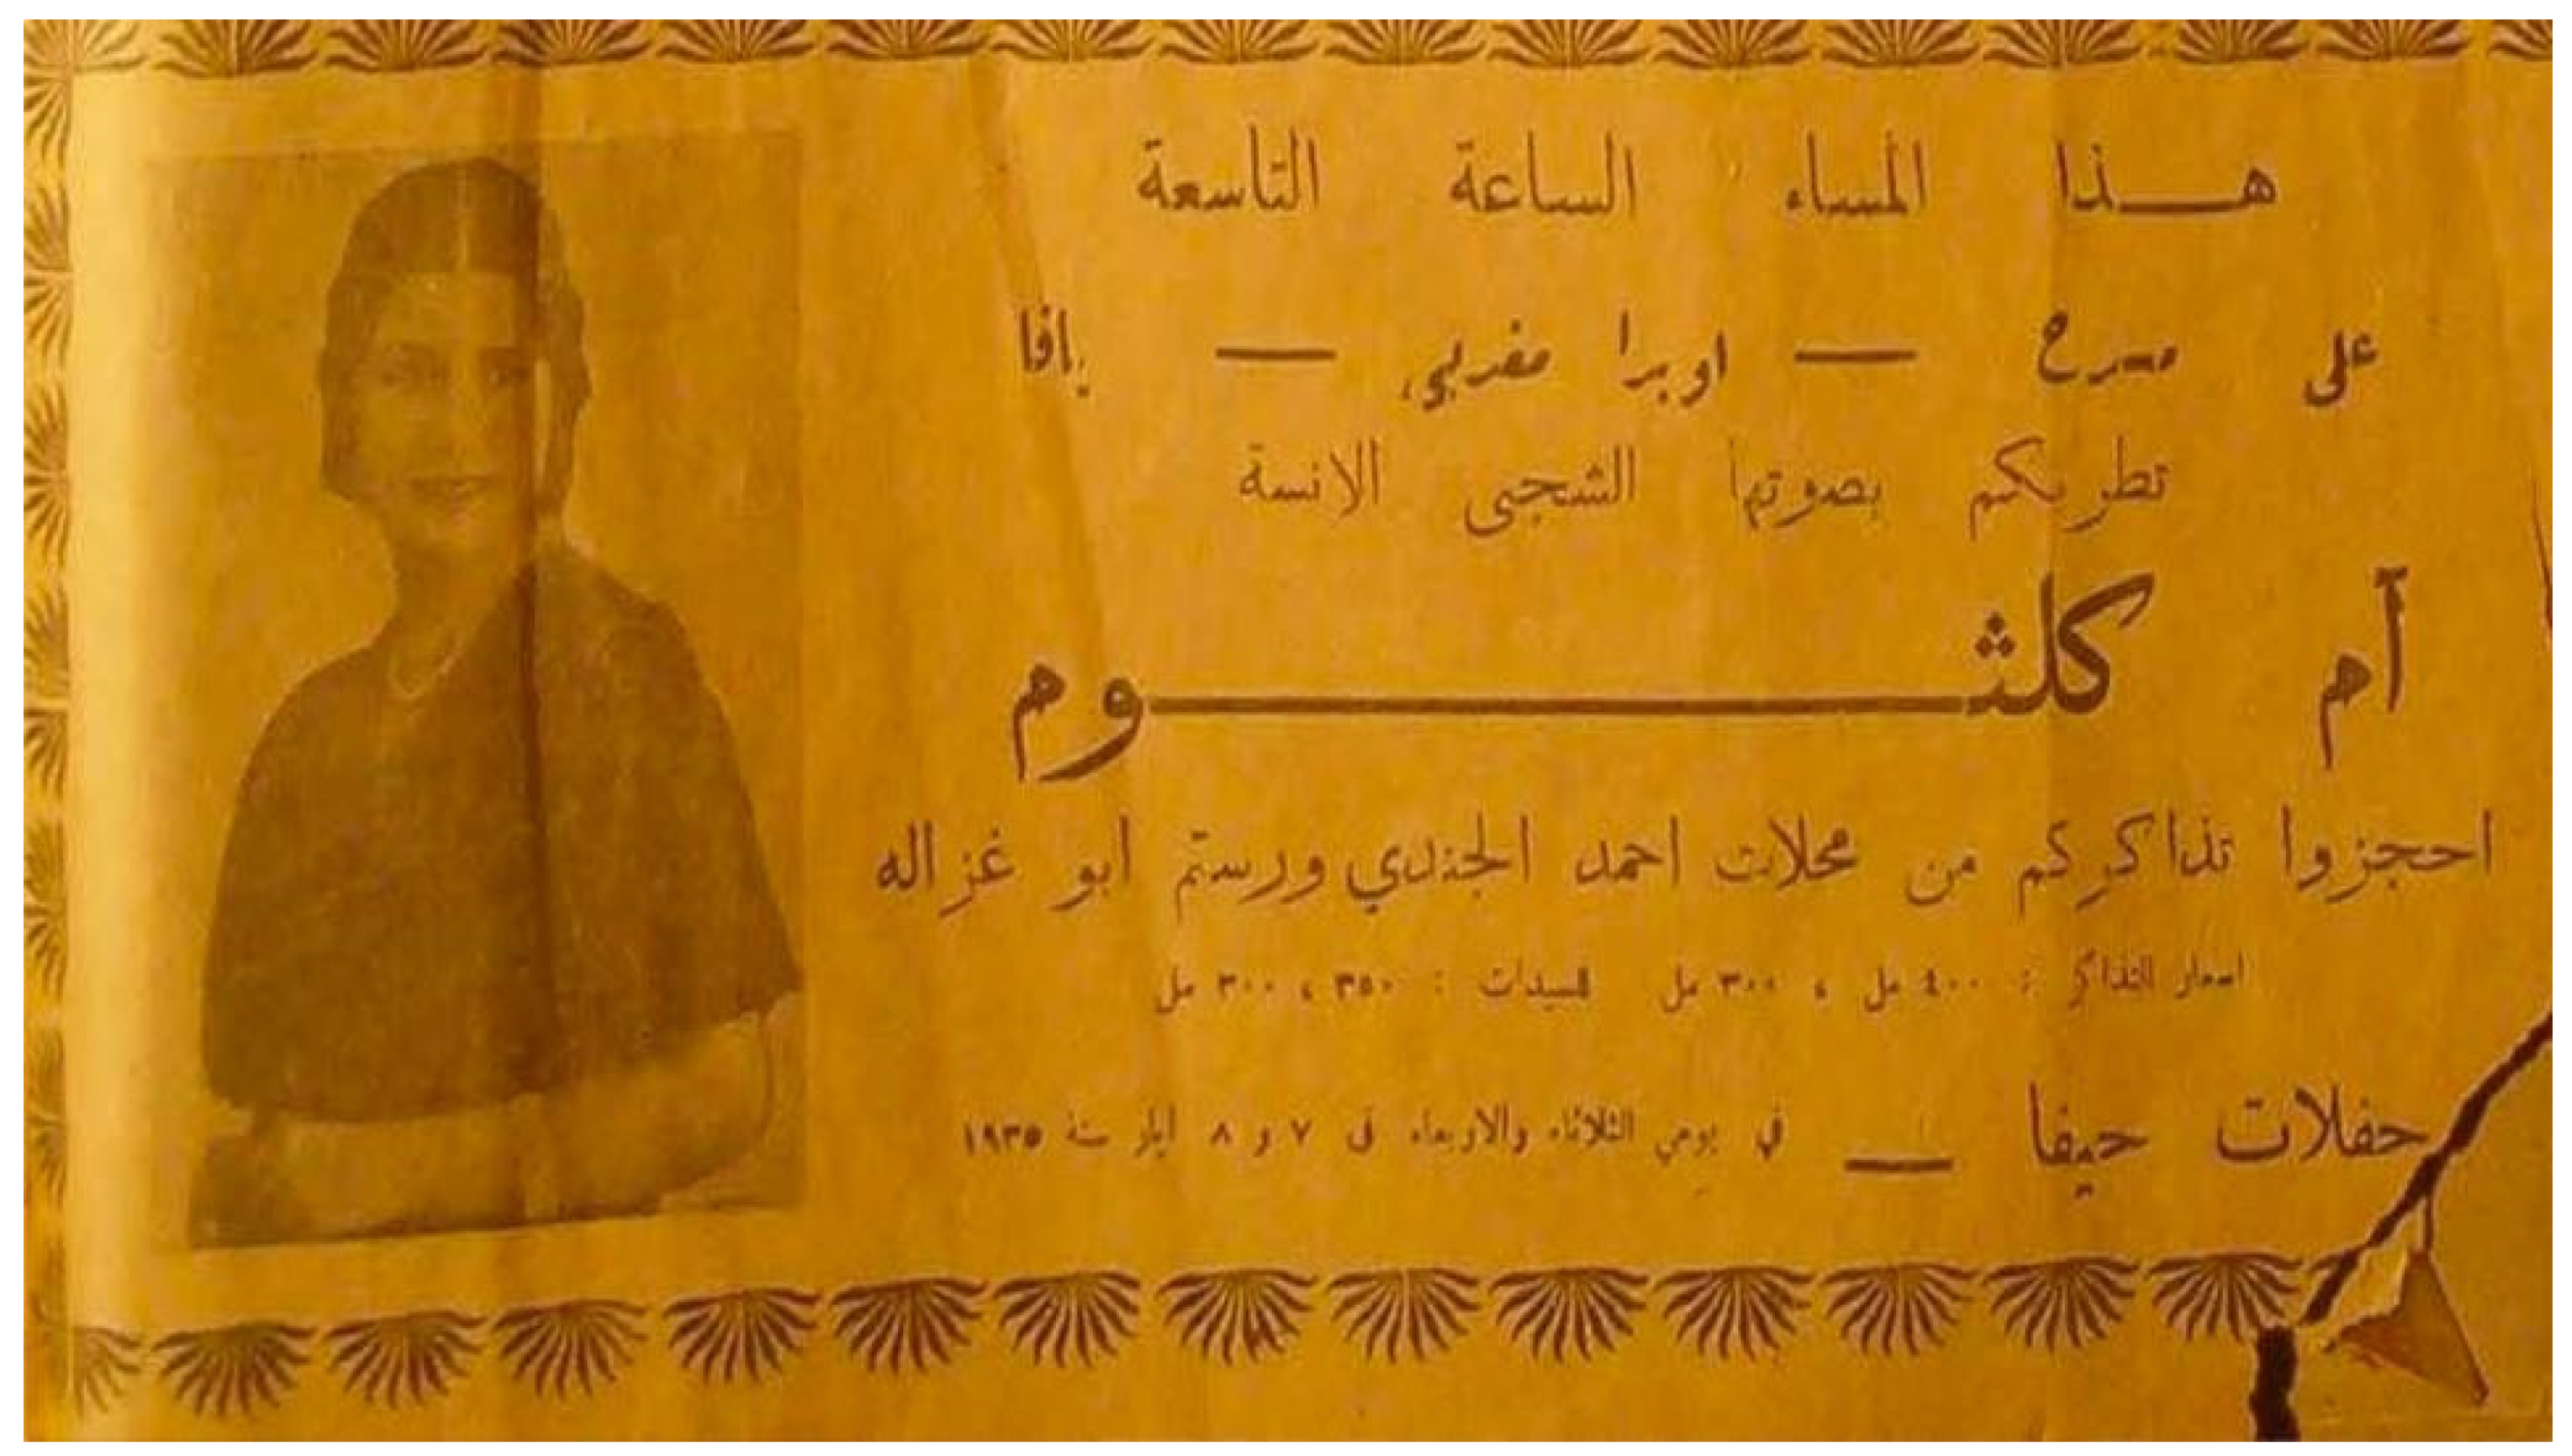 هذا المساء الساعة التاسعة
على مسرح — اوبرا مغربي، — يافا
تطربكم بصوتها الشجي الانسة
أم كلثوم
احجزوا تذاكركم من محلات احمد الجندي ورستم ابو غزاله
اسعار التذاكر : ٤٠٠ مل ، ٣٠٠ مل للسيدات : ٣٥٠ ، ٣٠٠ مل
حفلات حيفا — في يومي الثلاثاء والاربعاء فى ٧ و ٨ ايار سنة ١٩٣٥